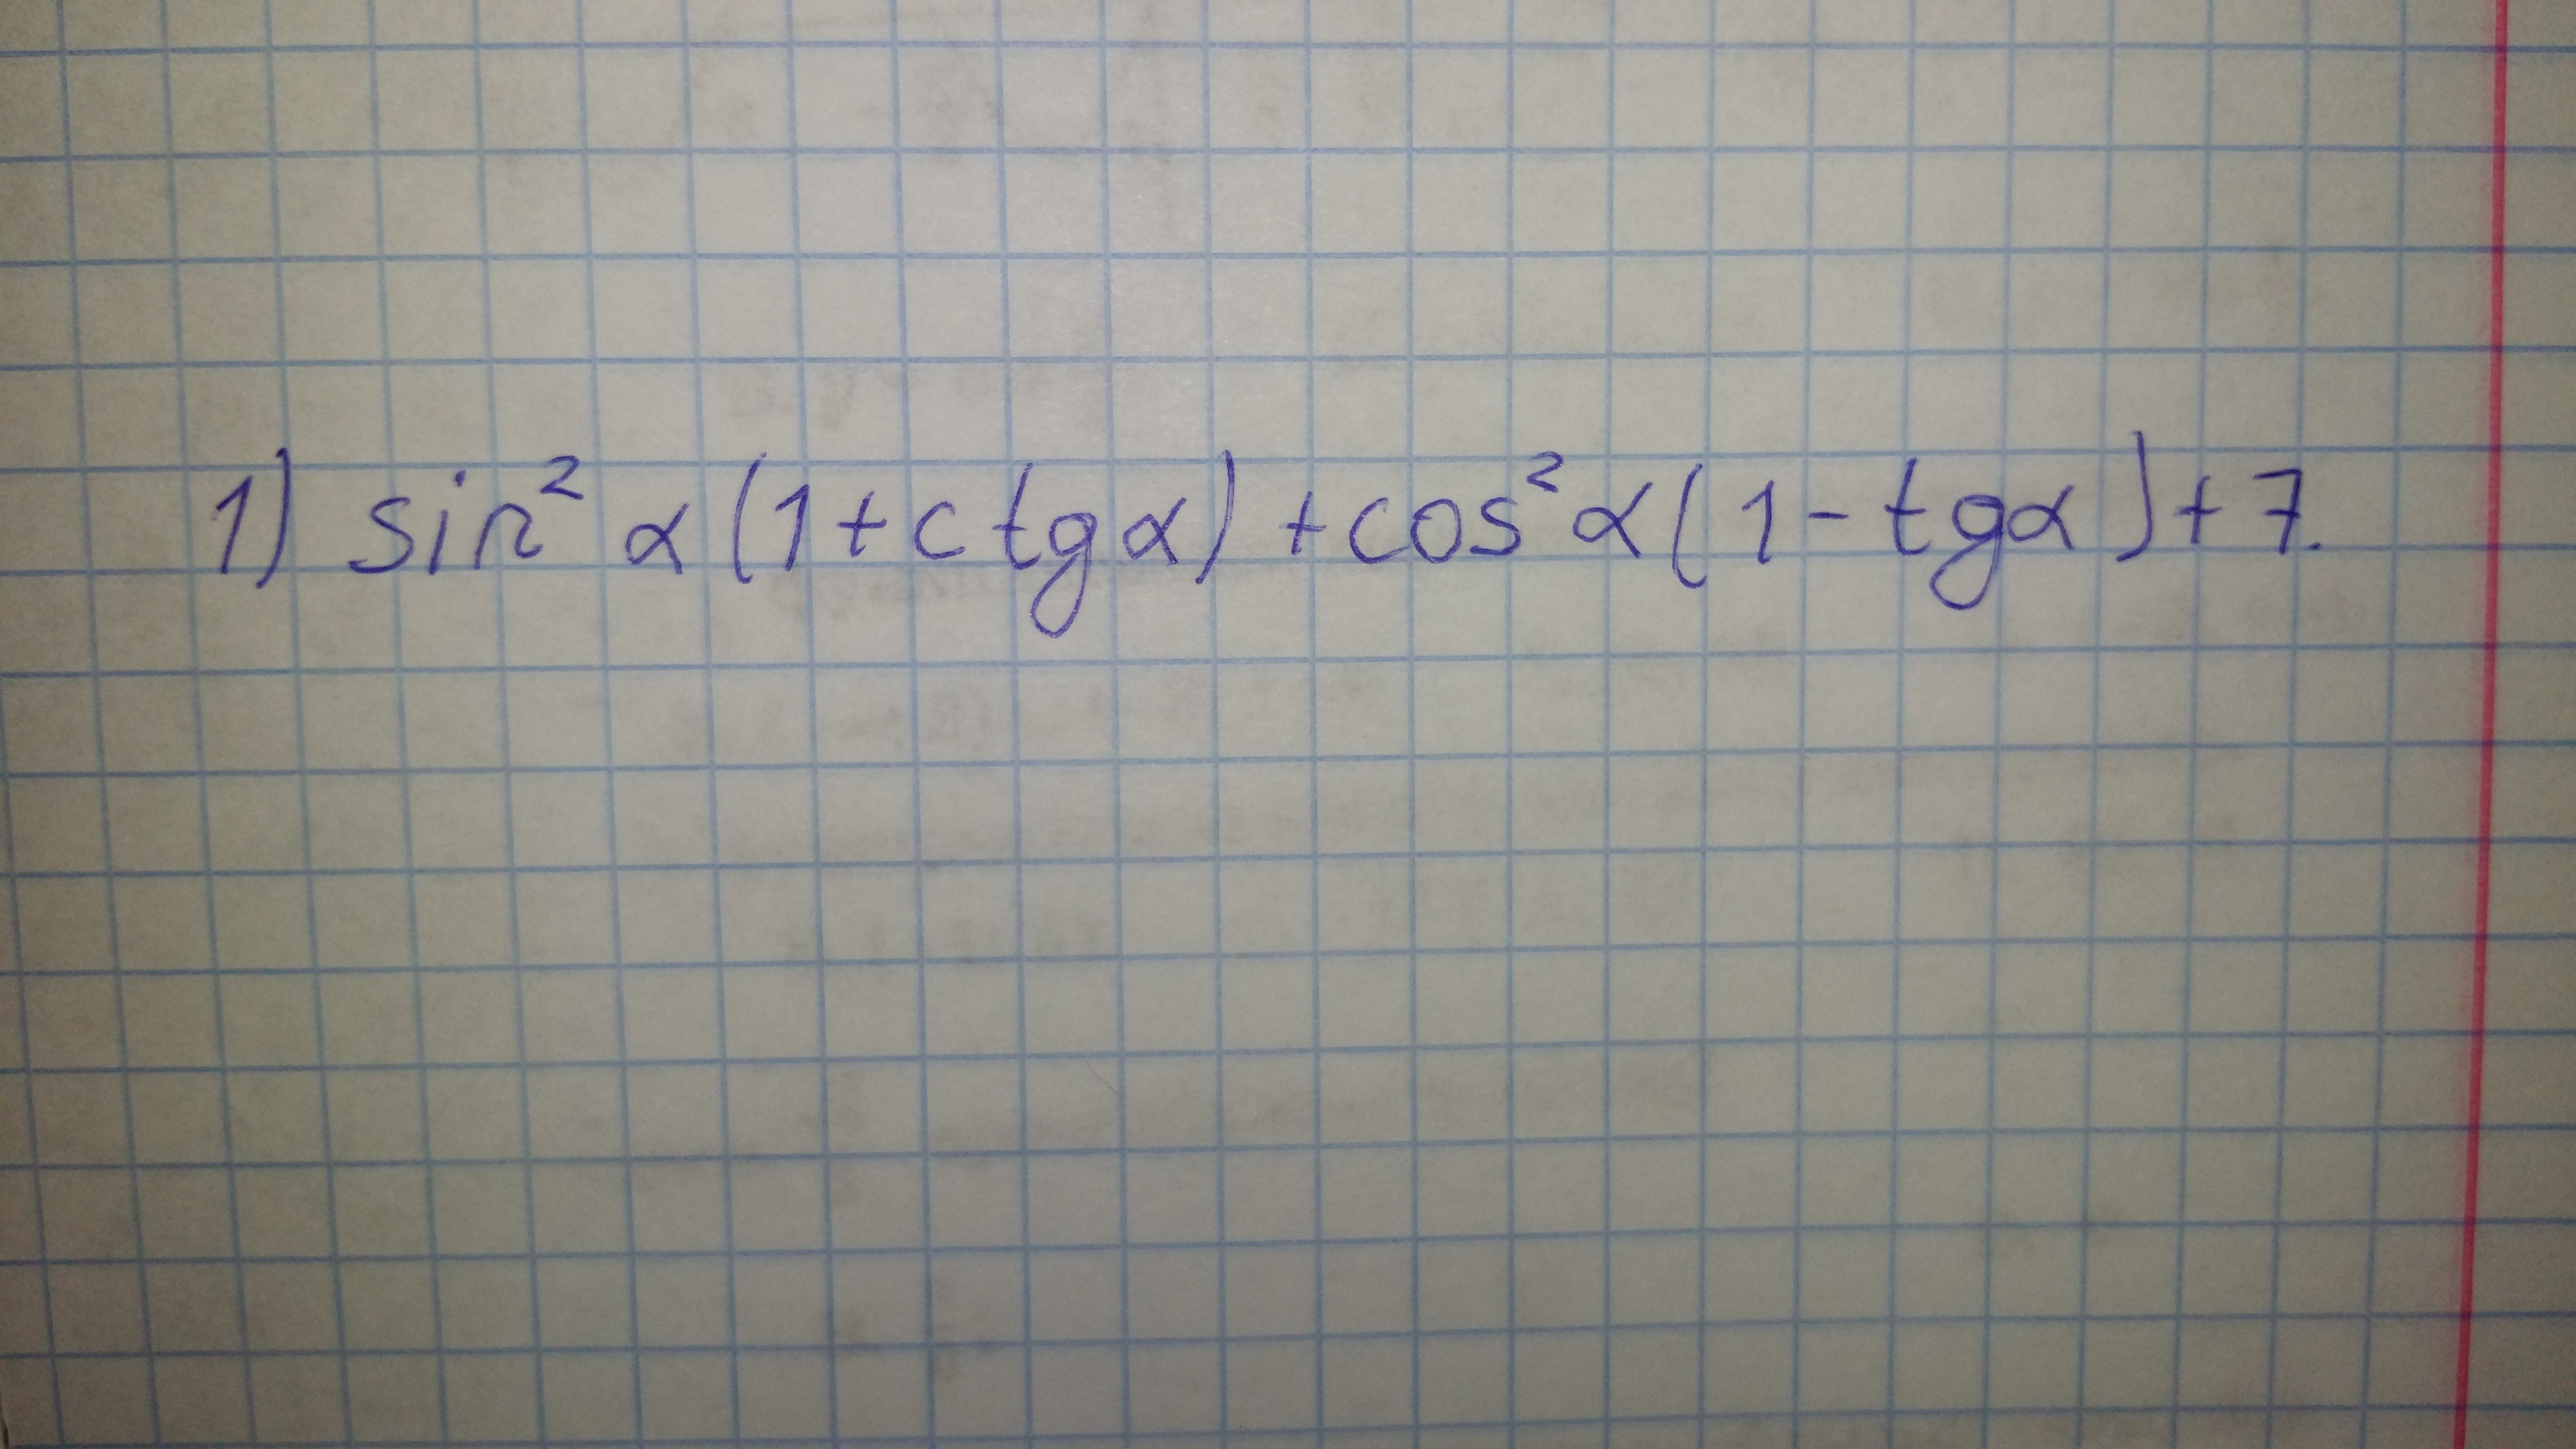 1) sin² α (1 + ctg α) + cos² α (1 - tg α) + 7.